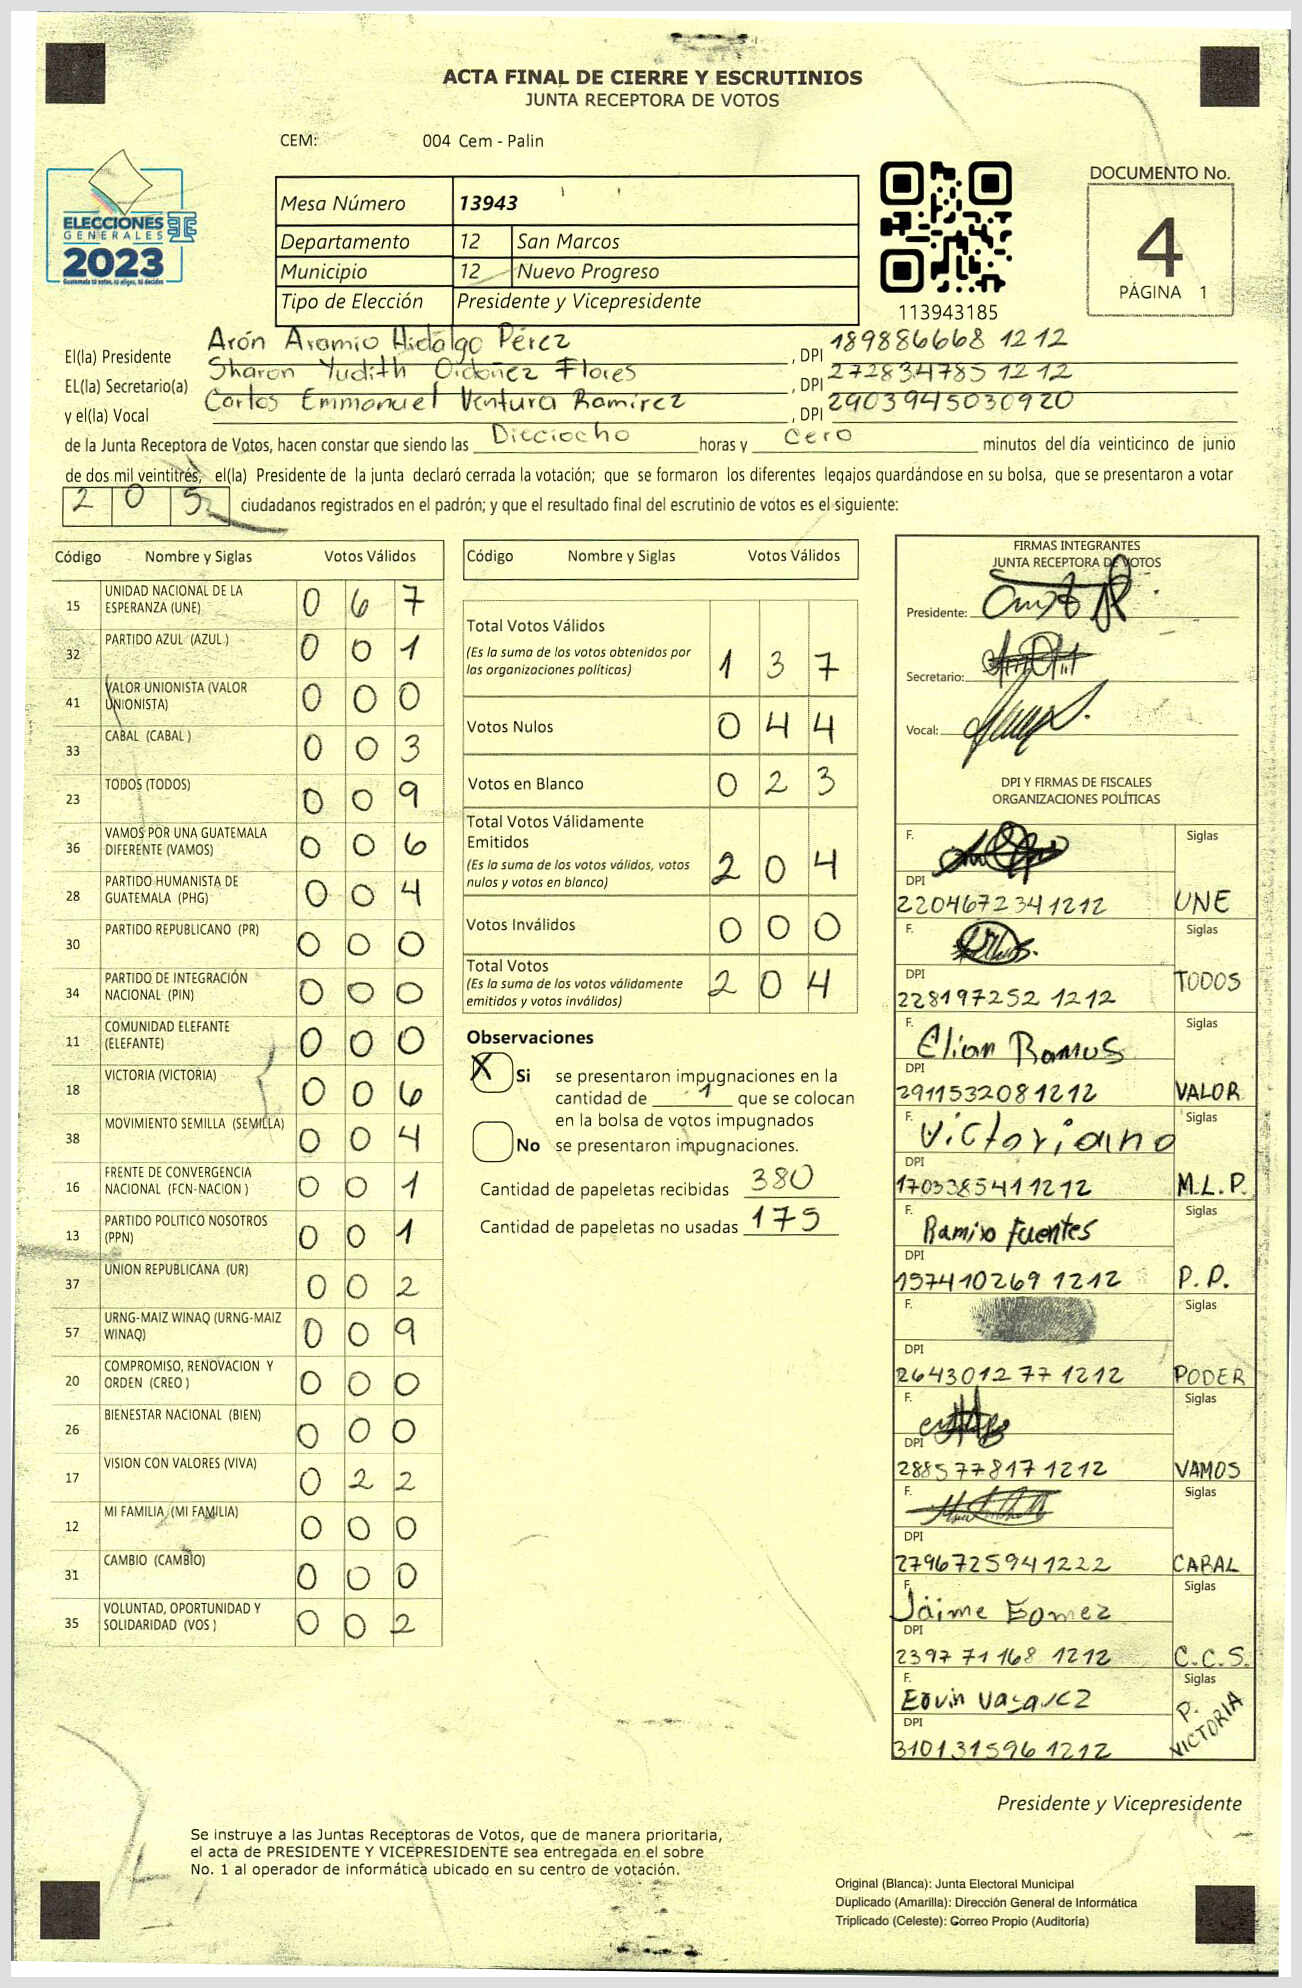 ACTA FINAL DE CIERRE Y ESCRUTINIOS
JUNTA RECEPTORA DE VOTOS
CEM: 004 Cem - Palin
ELECCIONES
GENERALES
2023
Guatemala tú votas, tú eliges, tú decides
Mesa Número 13943
Departamento 12 San Marcos
Municipio 12 Nuevo Progreso
Tipo de Elección Presidente y Vicepresidente
113943185
DOCUMENTO No.
4
PÁGINA 1
El(la) Presidente Arón Aramio Hidalgo Pérez, DPI 189886668 1212
EL(la) Secretario(a) Sharon Yudith Ordoñez Flores, DPI 272834785 1212
y el(la) Vocal Carlos Emmanuel Ventura Ramírez, DPI 2903945030920
de la Junta Receptora de Votos, hacen constar que siendo las Dieciocho horas y cero minutos del día veinticinco de junio
de dos mil veintitrés, el(la) Presidente de la junta declaró cerrada la votación; que se formaron los diferentes legajos guardándose en su bolsa, que se presentaron a votar
205 ciudadanos registrados en el padrón; y que el resultado final del escrutinio de votos es el siguiente:
Código Nombre y Siglas Votos Válidos
15 UNIDAD NACIONAL DE LA ESPERANZA (UNE) 0 6 7
32 PARTIDO AZUL (AZUL ) 0 0 1
41 VALOR UNIONISTA (VALOR UNIONISTA) 0 0 0
33 CABAL (CABAL ) 0 0 3
23 TODOS (TODOS) 0 0 9
36 VAMOS POR UNA GUATEMALA DIFERENTE (VAMOS) 0 0 6
28 PARTIDO HUMANISTA DE GUATEMALA (PHG) 0 0 4
30 PARTIDO REPUBLICANO (PR) 0 0 0
34 PARTIDO DE INTEGRACIÓN NACIONAL (PIN) 0 0 0
11 COMUNIDAD ELEFANTE (ELEFANTE) 0 0 0
18 VICTORIA (VICTORIA) 0 0 6
38 MOVIMIENTO SEMILLA (SEMILLA) 0 0 4
16 FRENTE DE CONVERGENCIA NACIONAL (FCN-NACION ) 0 0 1
13 PARTIDO POLITICO NOSOTROS (PPN) 0 0 1
37 UNION REPUBLICANA (UR) 0 0 2
57 URNG-MAIZ WINAQ (URNG-MAIZ WINAQ) 0 0 9
20 COMPROMISO, RENOVACION Y ORDEN (CREO ) 0 0 0
26 BIENESTAR NACIONAL (BIEN) 0 0 0
17 VISION CON VALORES (VIVA) 0 2 2
12 MI FAMILIA (MI FAMILIA) 0 0 0
31 CAMBIO (CAMBIO) 0 0 0
35 VOLUNTAD, OPORTUNIDAD Y SOLIDARIDAD (VOS ) 0 0 2
Código Nombre y Siglas Votos Válidos
Total Votos Válidos
(Es la suma de los votos obtenidos por
las organizaciones políticas) 1 3 7
Votos Nulos 0 4 4
Votos en Blanco 0 2 3
Total Votos Válidamente
Emitidos
(Es la suma de los votos válidos, votos
nulos y votos en blanco) 2 0 4
Votos Inválidos 0 0 0
Total Votos
(Es la suma de los votos válidamente
emitidos y votos inválidos) 2 0 4
Observaciones
X Si se presentaron impugnaciones en la
cantidad de 1 que se colocan
en la bolsa de votos impugnados
No se presentaron impugnaciones.
Cantidad de papeletas recibidas 380
Cantidad de papeletas no usadas 175
FIRMAS INTEGRANTES
JUNTA RECEPTORA DE VOTOS
Presidente:
Secretario:
Vocal:
DPI Y FIRMAS DE FISCALES
ORGANIZACIONES POLÍTICAS
F. Siglas
DPI
220467234 1212 UNE
F. Siglas
DPI
228197252 1212 TODOS
F. Elian Ramos Siglas
DPI
291153208 1212 VALOR
F. Victoriano Siglas
DPI
170338541 1212 M.L.P.
F. Ramiro Fuentes Siglas
DPI
157410269 1212 P.P.
F. Siglas
DPI
264301277 1212 PODER
F. Siglas
DPI
288577817 1212 VAMOS
F. Siglas
DPI
279672594 1222 CABAL
F. Jaime Gomez Siglas
DPI
239771168 1212 C.C.S.
F. Ervin Vasquez Siglas
DPI
310131596 1212 P. VICTORIA
Presidente y Vicepresidente
Se instruye a las Juntas Receptoras de Votos, que de manera prioritaria,
el acta de PRESIDENTE Y VICEPRESIDENTE sea entregada en el sobre
No. 1 al operador de informática ubicado en su centro de votación.
Original (Blanca): Junta Electoral Municipal
Duplicado (Amarilla): Dirección General de Informática
Triplicado (Celeste): Correo Propio (Auditoría)